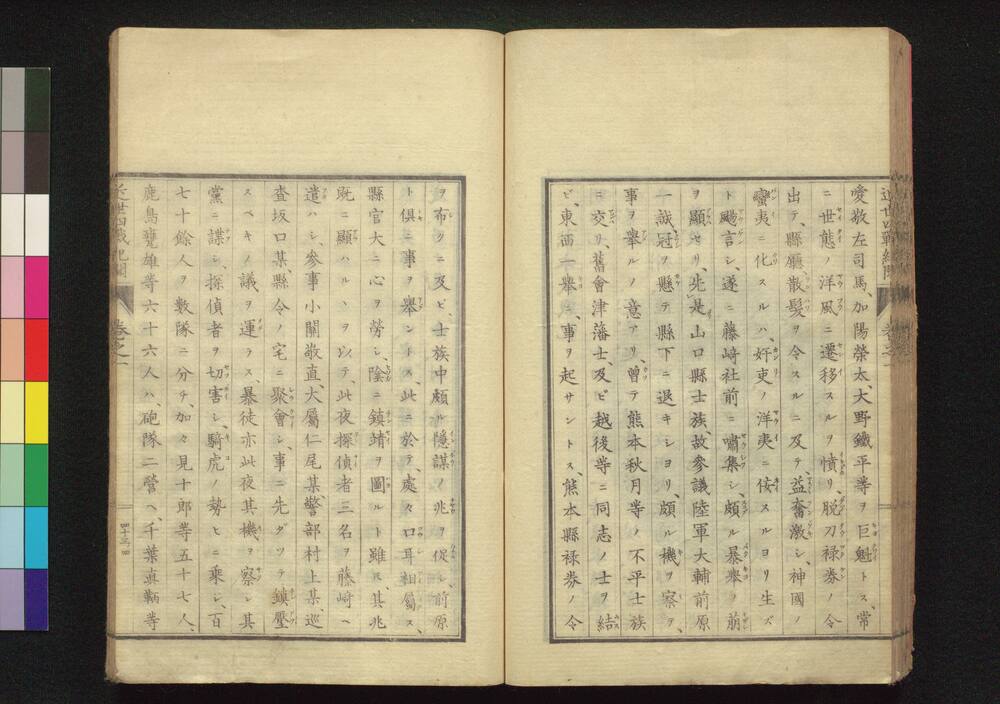 愛敬左司馬、加陽榮太、大野鐵平等ヲ巨魁トス、常
ニ世態ノ洋風ニ遷移スルヲ憤リ、脱刀禄券ノ令
出テ、縣廳、散髪ヲ令スルニ及テ、益奮激シ、神國ノ
蠻夷ニ化スルハ、奸吏ノ洋夷ニ侫スルヨリ生ズ
ト颺言シ、遂ニ藤崎社前ニ嘯集シ、頗ル暴擧ノ萠
ヲ顯セリ、先是山口縣士族、故參議陸軍大輔前原
一誠、冠ヲ懸テ縣下ニ退キシヨリ、頗ル機ヲ察ヲ、
事ヲ擧ルノ意アリ、曽テ熊本秋月等ノ不平士族
ニ交リ、舊會津藩士、及ビ越後等ニ同志ノ士ヲ結
ビ、東西一擧ニ、事ヲ起サントス、熊本縣禄券ノ令
ヲ布クニ及ビ、士族中頗ル隱謀ノ兆ヲ促シ、前原
ト倶ニ事ヲ擧ントス、此ニ於テ、處々口耳相屬ス、
縣官大ニ心ヲ勞シ、陰ニ鎮靖ヲ圖ルト雖モ、其兆
既ニ顯ハルヽヲ以テ、此夜探偵者三名ヲ藤崎ヘ
遣ハシ、參事小關敬直、大屬仁尾某、警部村上某、巡
査坂口某、縣令ノ宅ニ聚會シ、事ニ先ダツテ鎮壓
スベキノ議ヲ運ラス、暴徒亦此夜其機ヲ察シ、其
黨ニ諜シ、探偵者ヲ切害シ、騎虎ノ勢ヒニ乗シ、百
七十餘人ヲ數隊ニ分チ、加々見十郎等五十七人、
鹿島甕雄等六十六人ハ、砲隊二營ヘ、千葉眞鞆等
卷之一